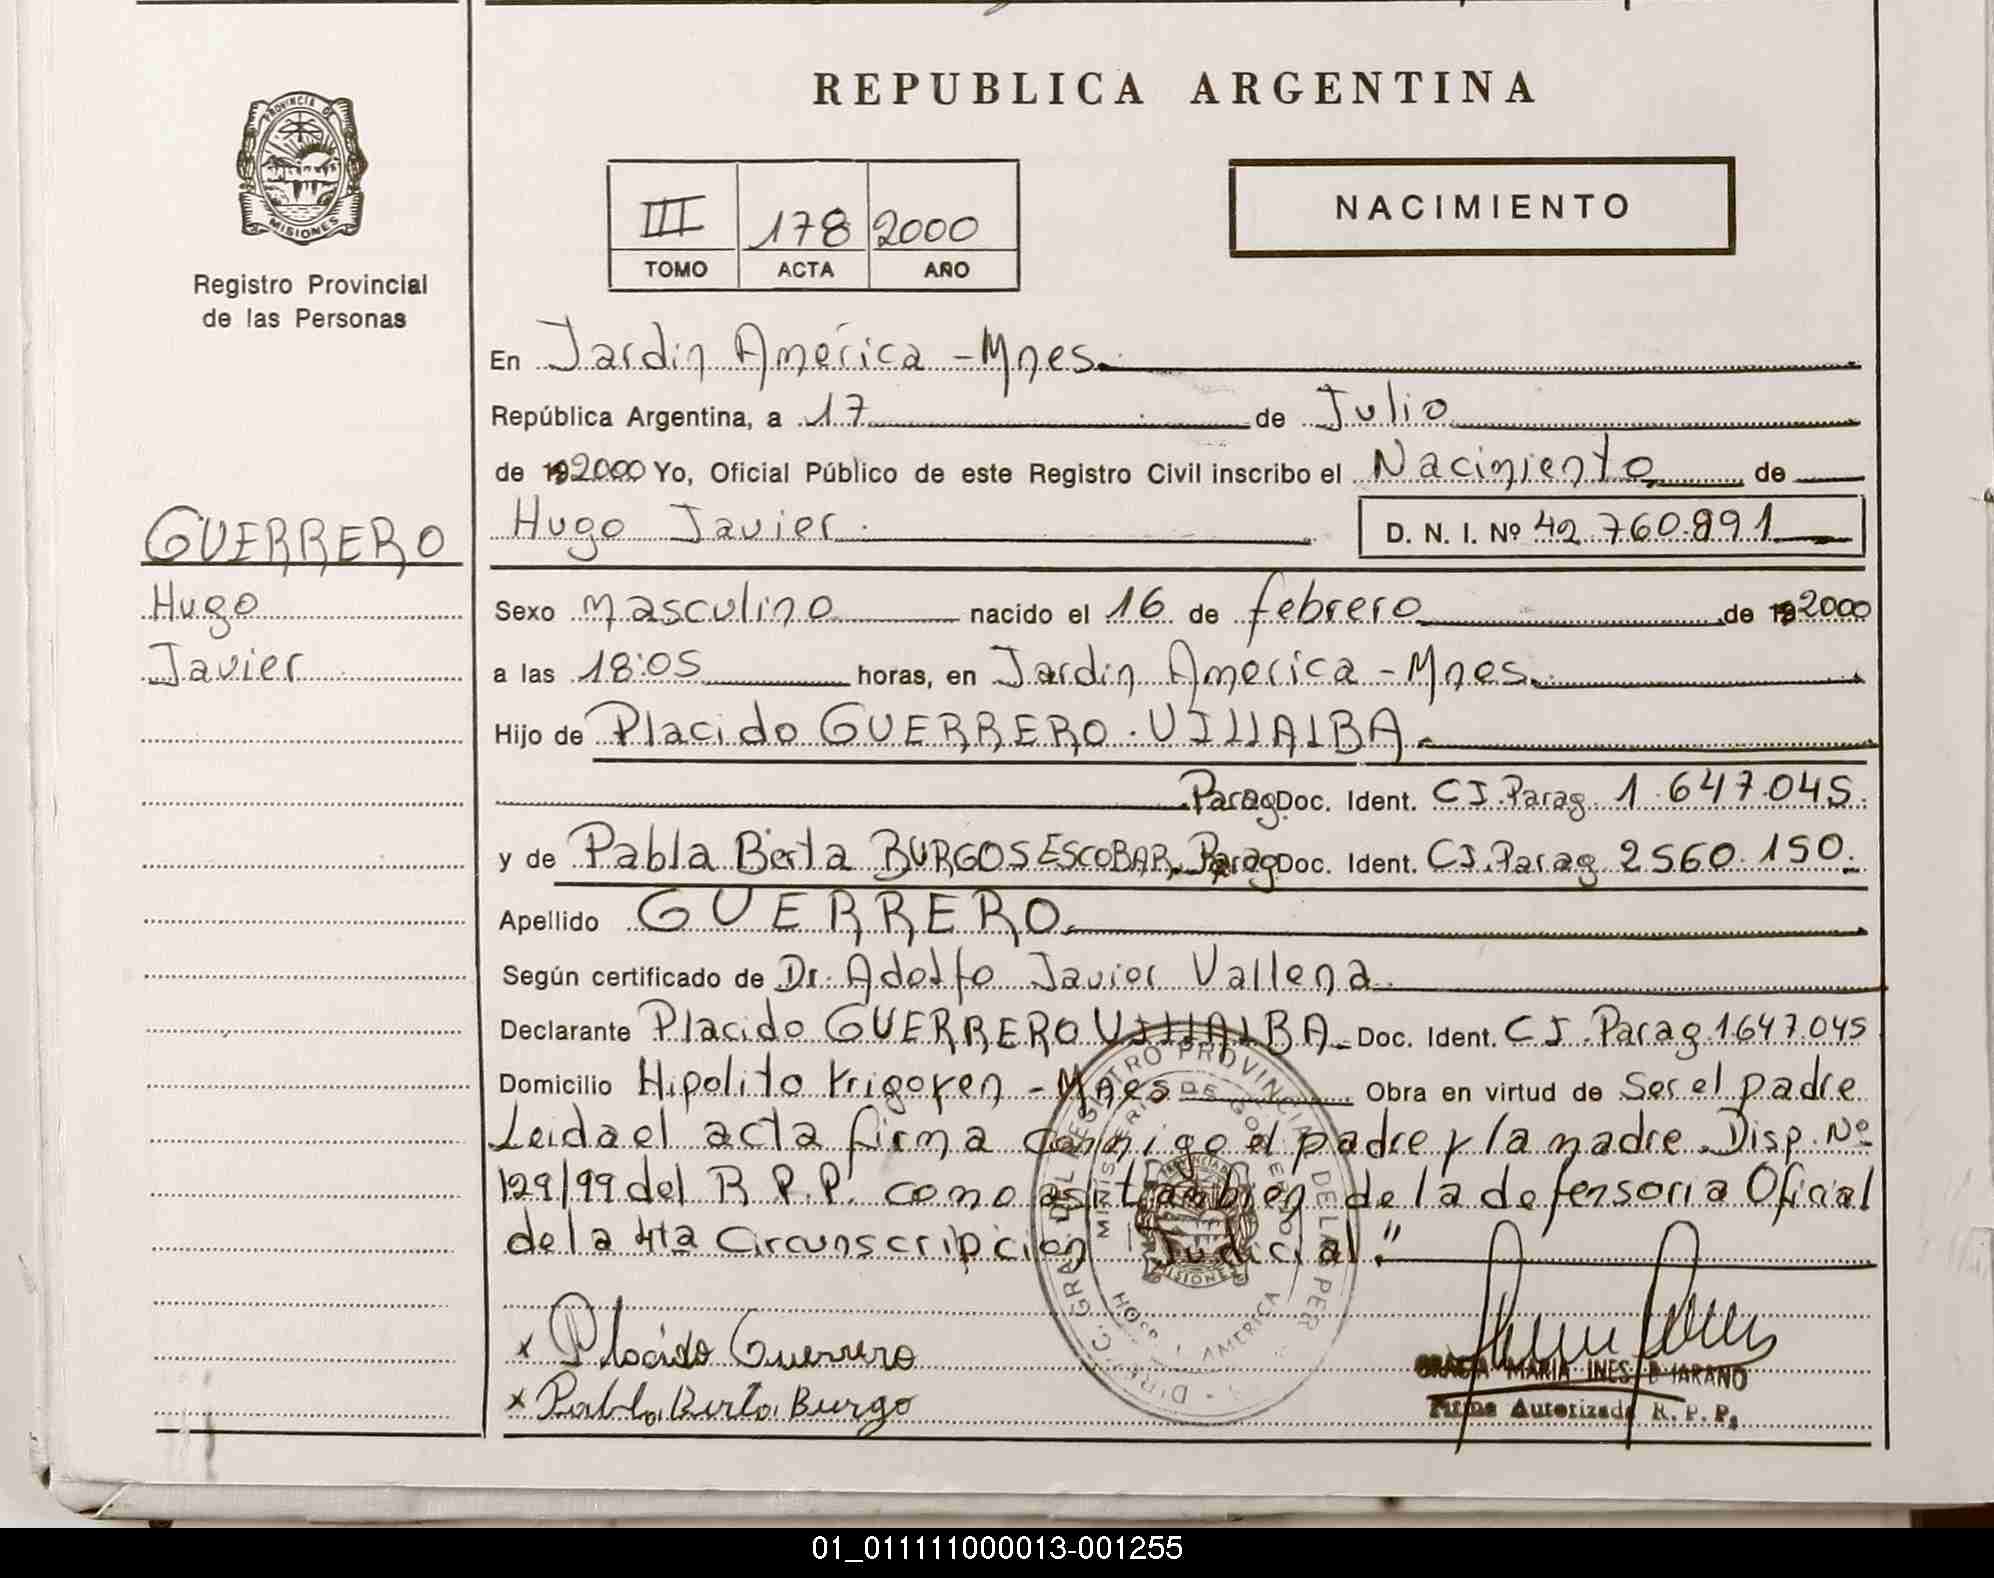 REPUBLICA ARGENTINA
PROVINCIA DE
MISIONES
Registro Provincial
de las Personas
NACIMIENTO
III 178 2000
TOMO ACTA AÑO
En Jardin América - Mnes.
República Argentina, a 17 de Julio
de 192000 Yo, Oficial Público de este Registro Civil inscribo el Nacimiento de
GUERRERO
Hugo
Javier
Hugo Javier. D. N. I. Nº 42.760.891
Sexo masculino nacido el 16 de febrero de 192000
a las 18:05 horas, en Jardin América - Mnes.
Hijo de Placido GUERRERO VILLALBA.
Parag. Doc. Ident. CI. Parag 1.647.045.
y de Pabla Berta BURGOS ESCOBAR, Parag Doc. Ident. CI. Parag 2560.150.
Apellido GUERRERO.
Según certificado de Dr. Adolfo Javier Vallena.
Declarante Placido GUERRERO VILLALBA. Doc. Ident. CI. Parag 1.647.045
Domicilio Hipolito Yrigoyen - Mnes Obra en virtud de Ser el padre
Leida el acta firma conmigo el padre y la madre. Disp. Nº
129/99 del R.P.P. como asi tambien de la defensoria Oficial
de la 4ta Circunscripcion "Judicial."
x Placido Guerrero
x Pabla Berta Burgo
DIREC. GRAL. DEL REGISTRO PROVINCIAL DE LAS PER
MINISTERIO DE GOBIERNO
HOSP. J. AMERICA
MISIONES
MARIA INES
Firma Autorizada R. P. P.
01_011111000013-001255